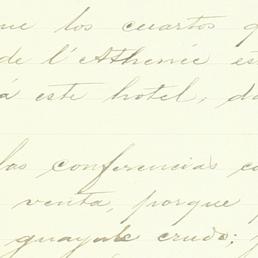 ue los cuartos q
de l'Athenée es
á este hotel, d
las conferencias c
venta, porque
guayule crudo;